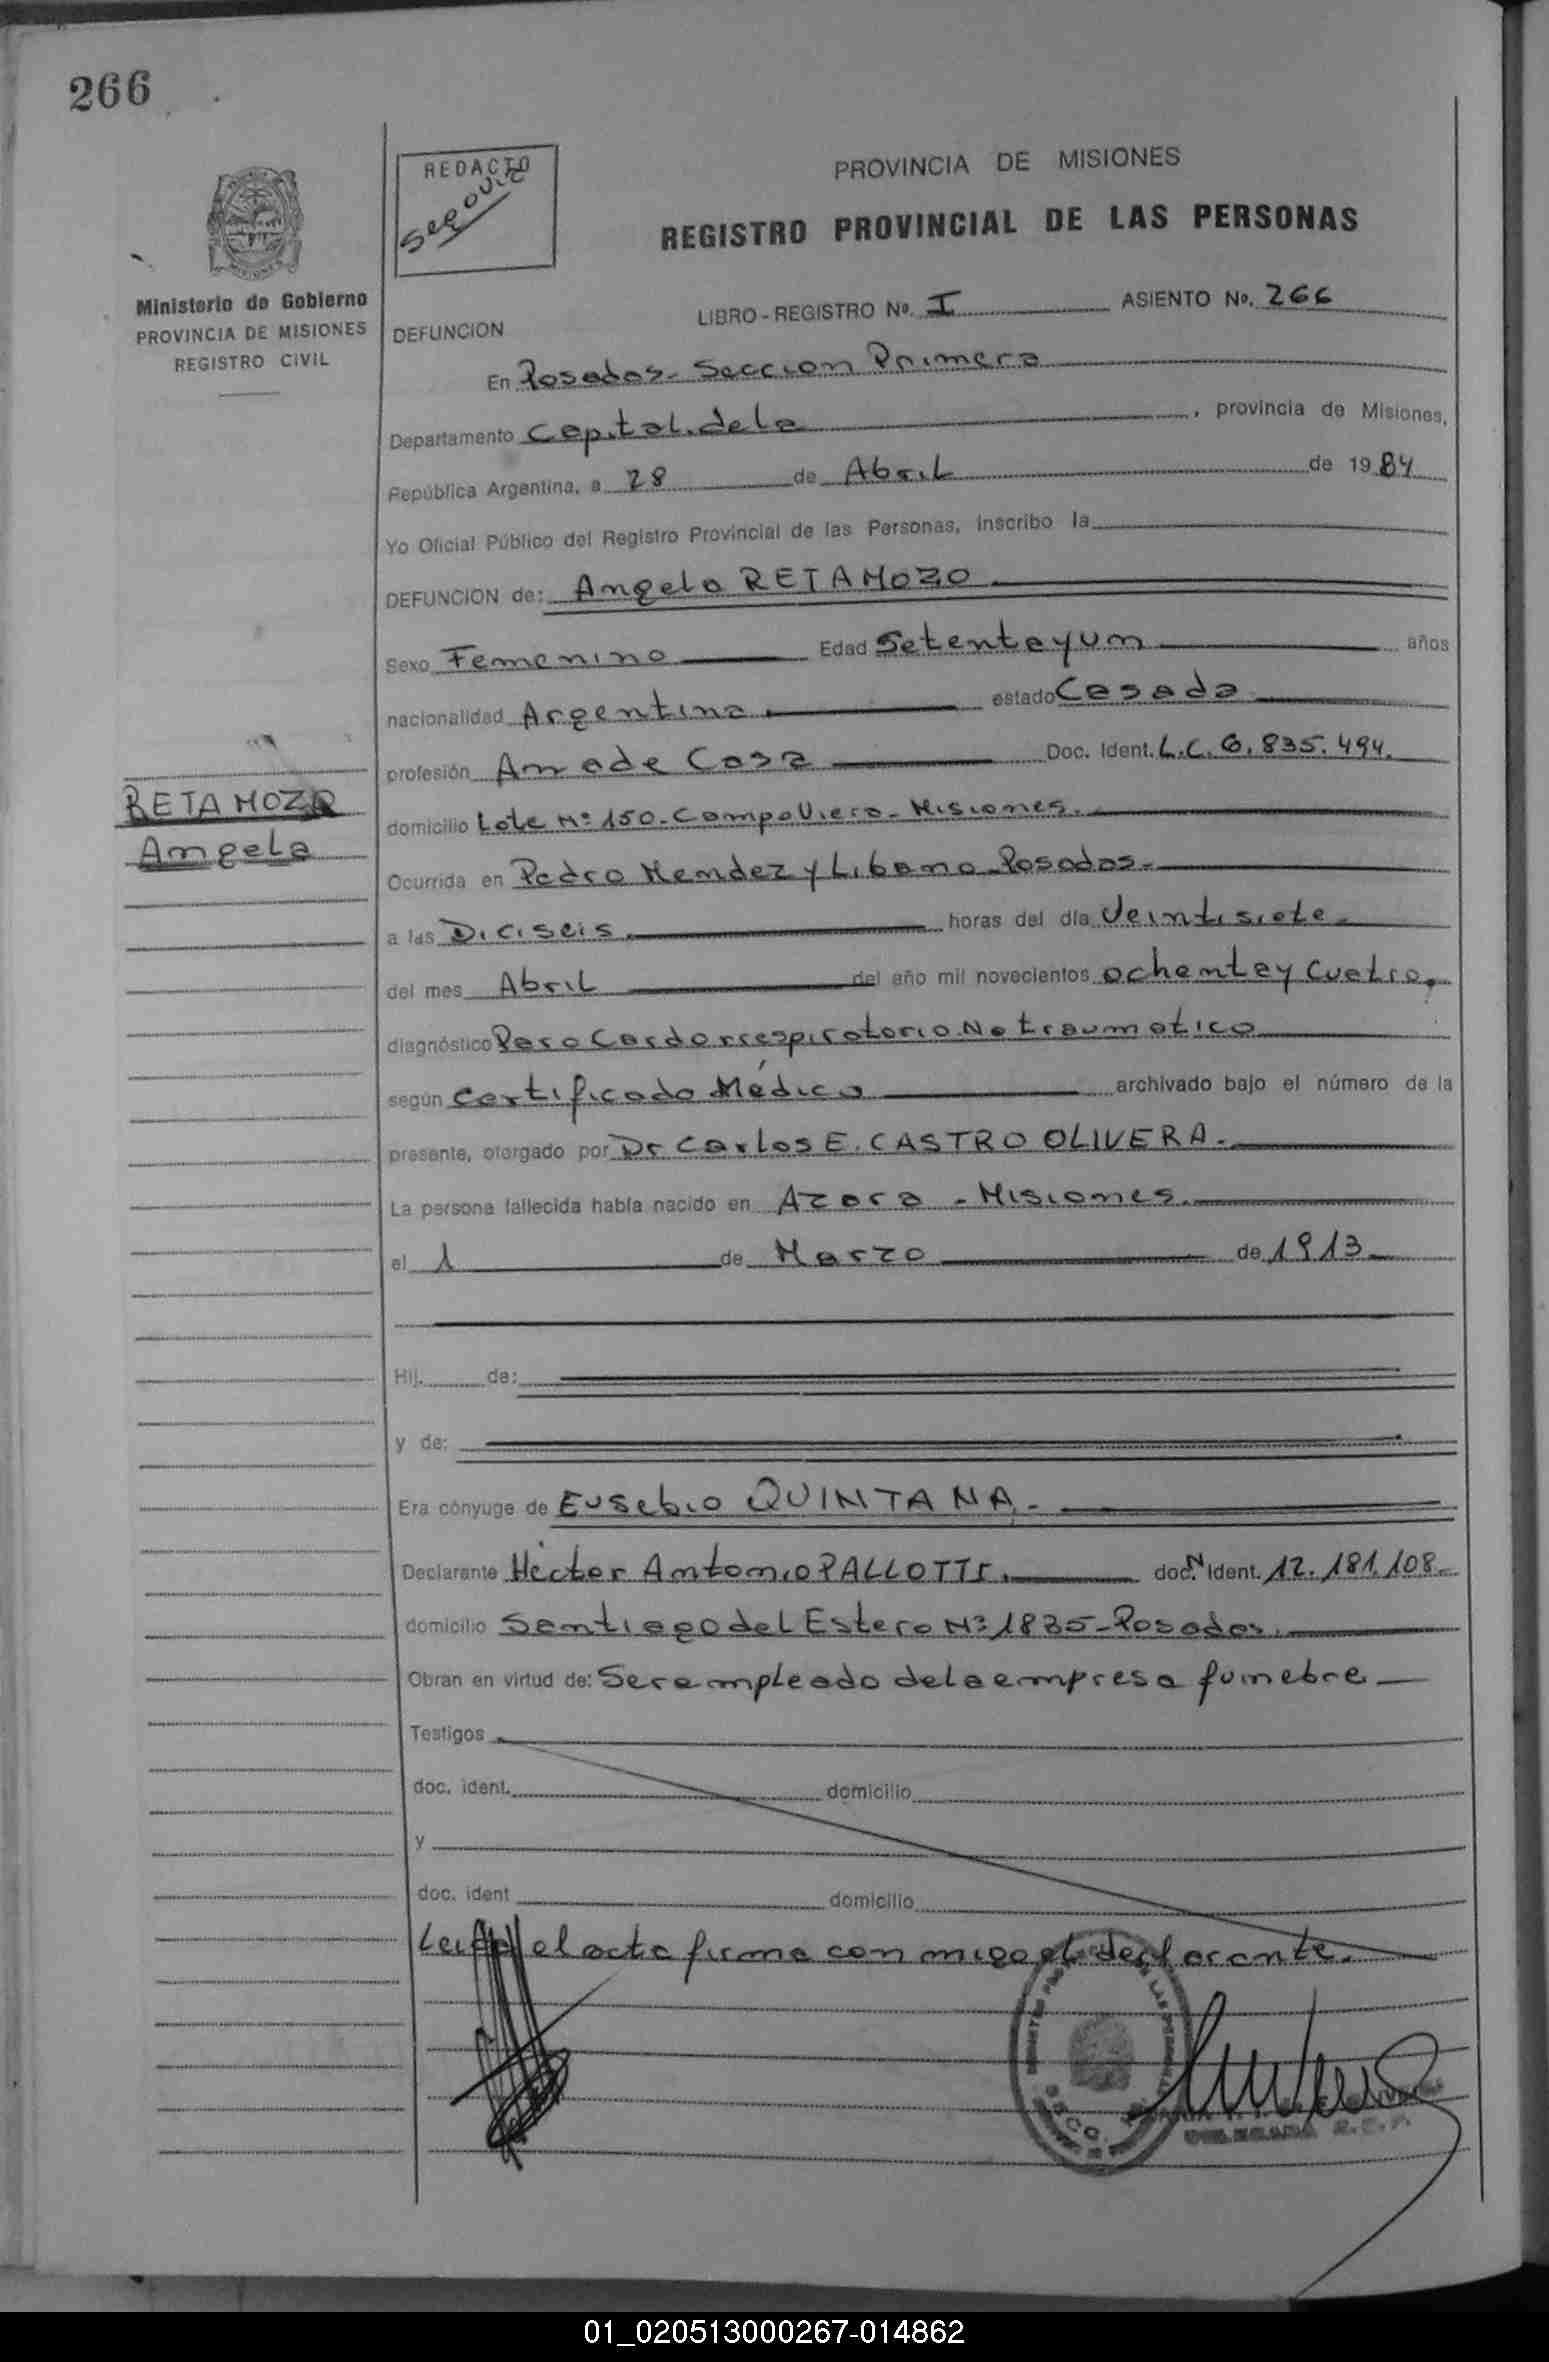 266
REDACTO
Segovia
PROVINCIA DE MISIONES
REGISTRO PROVINCIAL DE LAS PERSONAS
Ministerio de Gobierno
PROVINCIA DE MISIONES
REGISTRO CIVIL
LIBRO - REGISTRO Nº. I ASIENTO Nº. 266
DEFUNCION
En Posadas - Seccion Primera
Departamento Capital. de la , provincia de Misiones,
República Argentina, a 28 de Abril de 1984
Yo Oficial Público del Registro Provincial de las Personas, inscribo la
DEFUNCION de: Angela RETAMOZO
Sexo Femenino Edad Setenta y un años
nacionalidad Argentina. estado Casada
profesión Ama de Casa Doc. Ident. L.C. 6.835.494.
RETAMOZO
Angela
domicilio Lote Nº 150 - Campo Viera - Misiones.
Ocurrida en Pedro Mendez y Libano - Posadas -
a las Diciseis. horas del día Veintisiete -
del mes Abril del año mil novecientos ochenta y cuatro.
diagnóstico Paro Cardorrespiratorio No traumatico
según certificado Médico archivado bajo el número de la
presente, otorgado por Dr Carlos E. CASTRO OLIVERA -
La persona fallecida había nacido en Azara - Misiones.
el 1 de Marzo de 1913
Hij. de:
y de:
Era cónyuge de Eusebio QUINTANA. -
Declarante Héctor Antonio PALLOTTI. doc. N Ident. 12.181.108 -
domicilio Santiago del Estero Nº 1835 - Posadas.
Obran en virtud de: Ser empleado de la empresa funebre
Testigos
doc. ident. domicilio
y
doc. ident domicilio
Leida el acta firma con migo el declarante.
DELEGADA R.P.P.
01_020513000267-014862